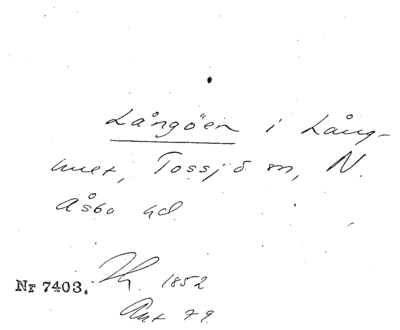 Långöen i Lång-
huet, Tossjö sn, N.
Åsbo hd.
Nr 7403. Th. 1852
Ant 79.